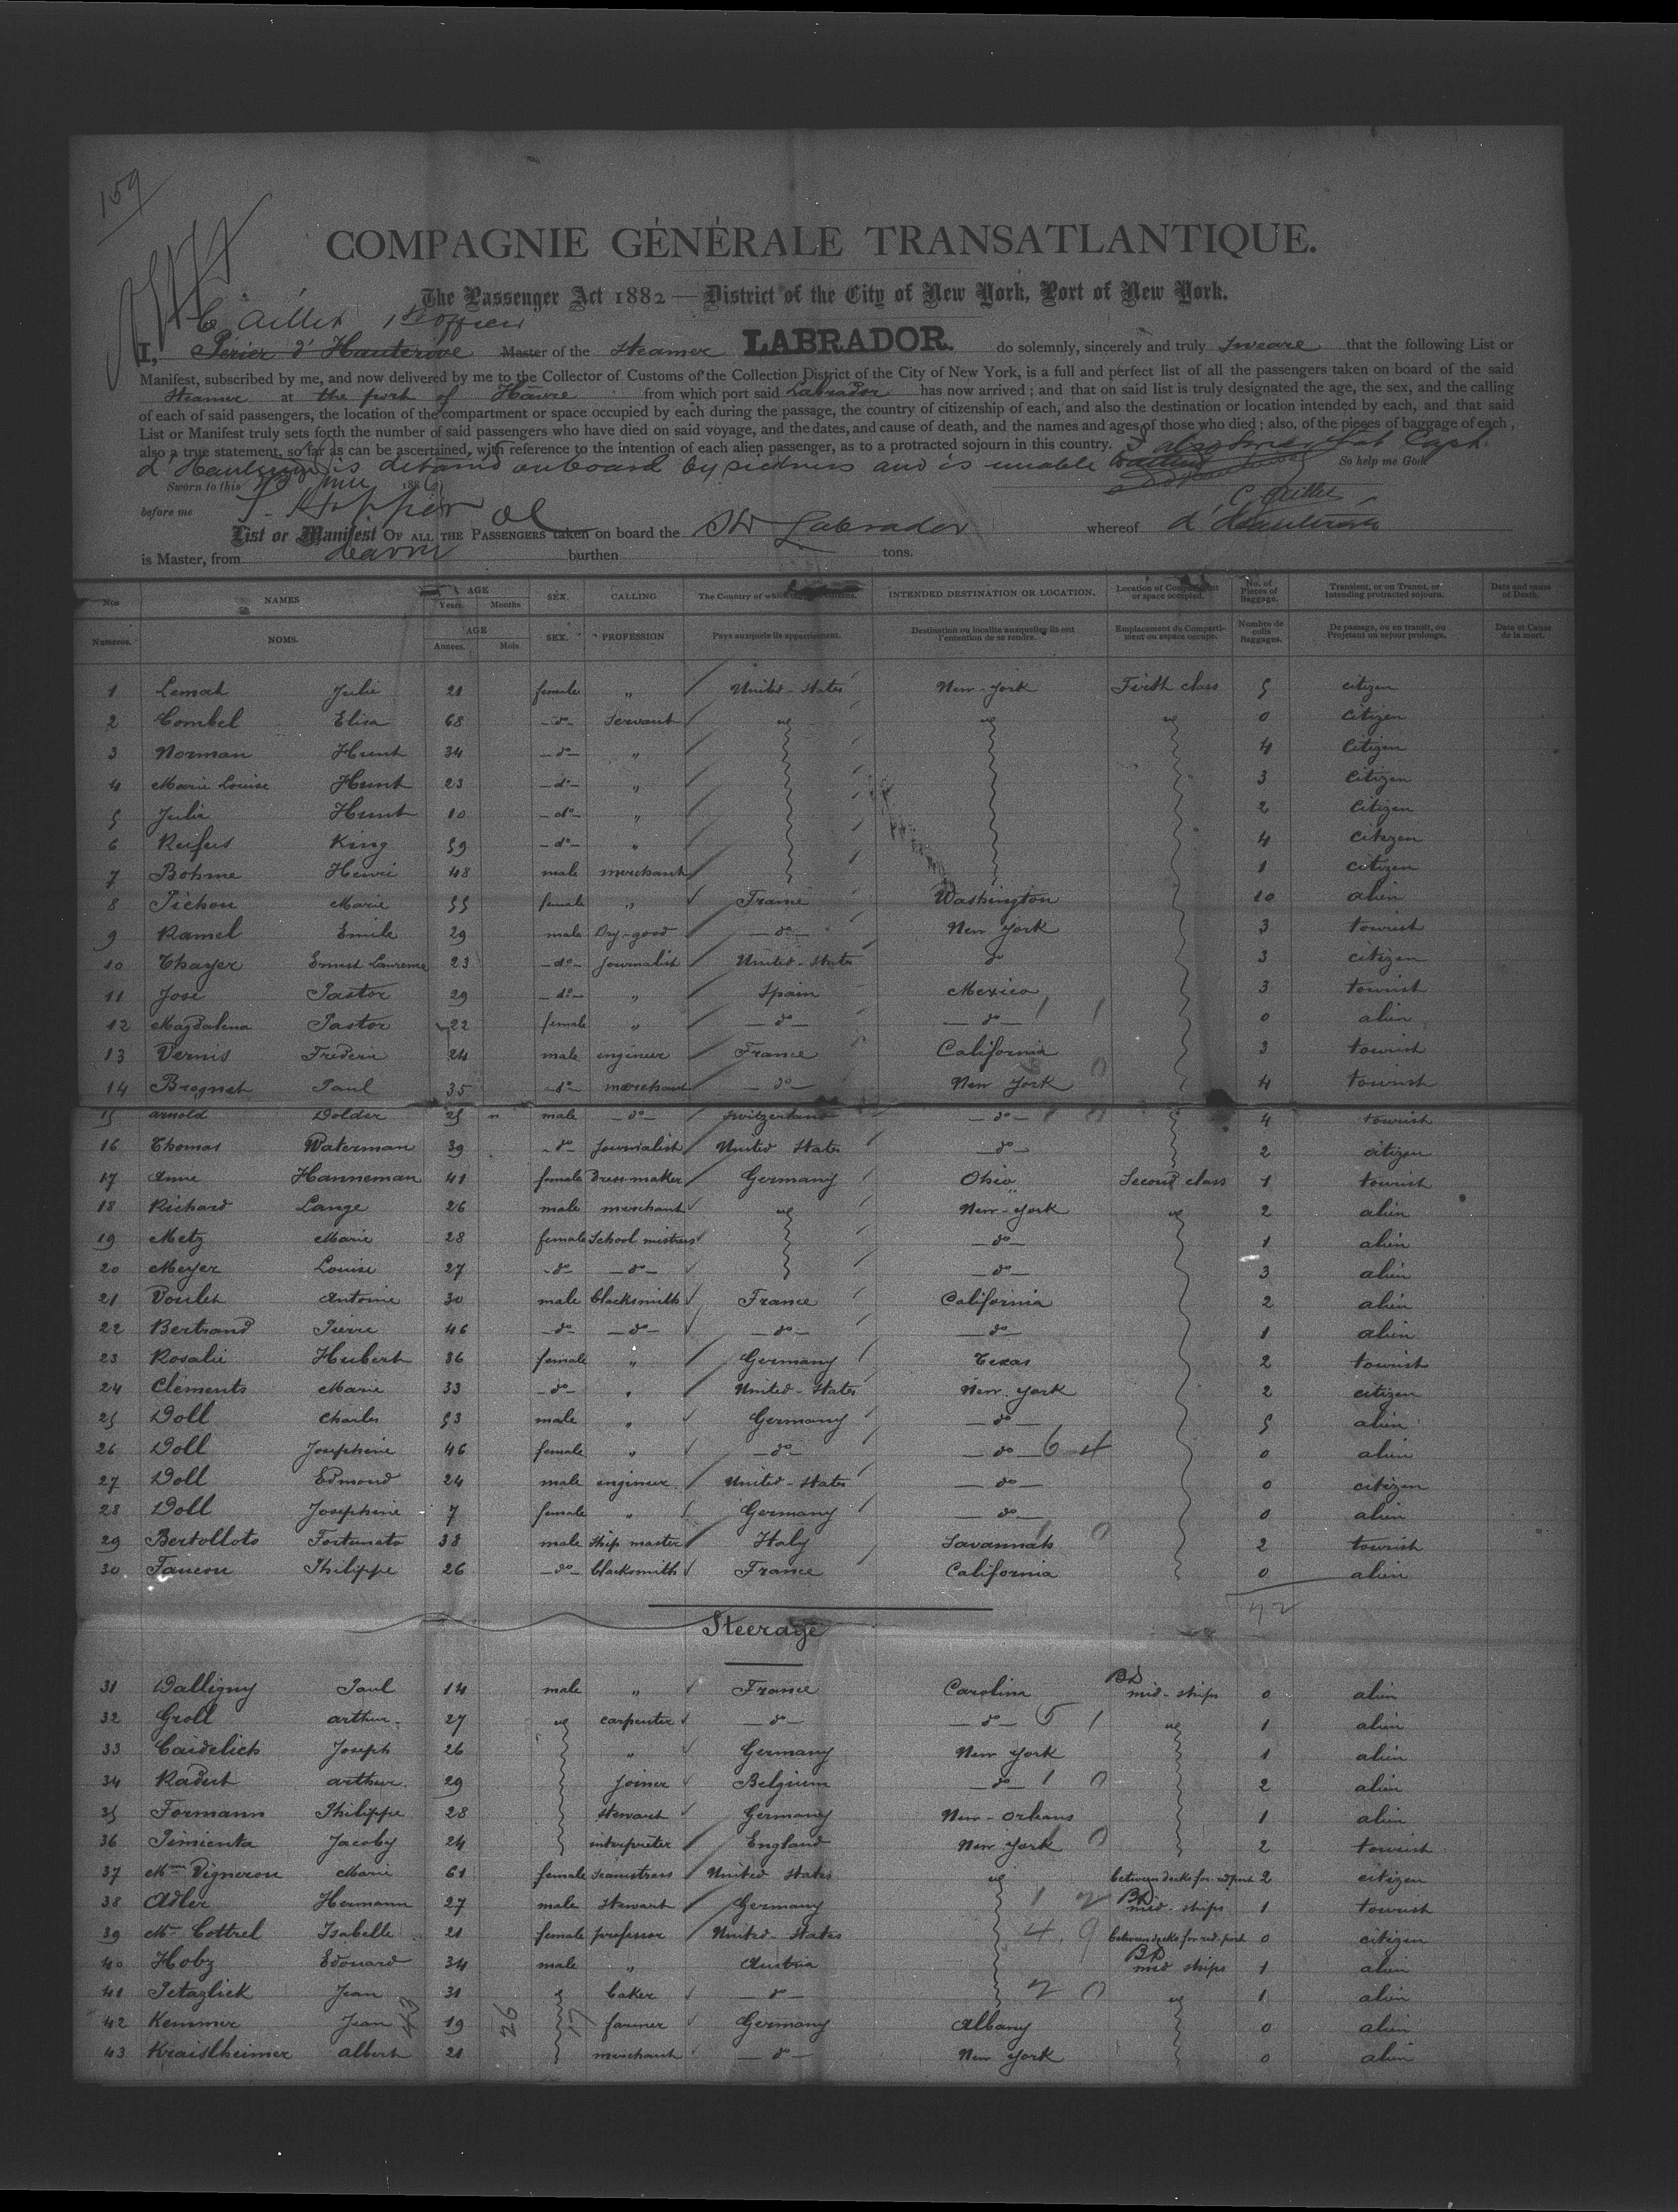 159
COMPAGNIE GÉNÉRALE TRANSATLANTIQUE.
The Passenger Act 1882 — District of the City of New York, Port of New York.
C Aillet 1st officer
I, Perier d'Hauterive Master of the Steamer LABRADOR. do solemnly, sincerely and truly sweare that the following List or
Manifest, subscribed by me, and now delivered by me to the Collector of Customs of the Collection District of the City of New York, is a full and perfect list of all the passengers taken on board of the said
Steamer at the port of Havre from which port said Labrador has now arrived ; and that on said list is truly designated the age, the sex, and the calling
of each of said passengers, the location of the compartment or space occupied by each during the passage, the country of citizenship of each, and also the destination or location intended by each, and that said
List or Manifest truly sets forth the number of said passengers who have died on said voyage, and the dates, and cause of death, and the names and ages of those who died ; also, of the pieces of baggage of each ,
also a true statement, so far as can be ascertained, with reference to the intention of each alien passenger, as to a protracted sojourn in this country. I also that Capt
d'Hauterive is detained onboard by sickness and is unable So help me God
Sworn to this 188
before me
List or Manifest OF ALL THE PASSENGERS taken on board the SS Labrador whereof d'Hauterive
is Master, from Havre burthen tons.
Nos NAMES AGE Years. Months SEX. CALLING The Country of which INTENDED DESTINATION OR LOCATION. Location of Compartment or space occupied. No. of Pieces of Baggage. Transient, or on Transit, or Intending protracted sojourn. Date and cause of Death.
Numeros. NOMS. AGE Annees. Mois SEX. PROFESSION Pays auxquels ils appartiennent. Destination ou localite auxquelles ils ont l'entention de se rendre. Emplacement du Comparti-ment ou espace occupe. Nombre de colis Baggages. De passage, ou en transit, ou Projetant un sejour prolonge. Date et Cause de la mort.
1 Lemat Julie 21 female " United-States New-York Firth class 5 citizen
2 Combel Elisa 68 -do- Servant 0 citizen
3 Norman Hunt 34 -do- " 4 citizen
4 Marie Louise Hunt 23 -do- " 3 citizen
5 Julie Hunt 10 -do- " 2 citizen
6 Rufus King 59 -do- " 4 citizen
7 Bohme Henri 48 male merchant 1 citizen
8 Pichon Marie 55 female " France Washington 10 alien
9 Ramel Emile 29 male Dry-good -do- New York 3 tourist
10 Thayer Ernest Laurence 23 -do- Journalist United-States do 3 citizen
11 Jose Pastor 29 -do- " Spain Mexico 3 tourist
12 Magdalena Pastor 22 female " -do- -do- 0 alien
13 Vernis Frederic 24 male engineer France California 3 tourist
14 Brognet Paul 35 -do- merchant -do- New York 4 tourist
15 Arnold Dolder 25 male -do- Switzerland -do- 4 tourist
16 Thomas Waterman 39 -do- Journalist United States -do- 2 citizen
17 Anne Hanneman 41 female Dressmaker Germany Ohio Second class 1 tourist
18 Richard Lange 26 male merchant New-York 2 alien
19 Metz Marie 28 female School mistress -do- 1 alien
20 Meyer Louise 27 -do- -do- -do- 3 alien
21 Voulet Antoine 30 male blacksmith France California 2 alien
22 Bertrand Pierre 46 -do- -do- -do- -do- 1 alien
23 Rosalie Hubert 36 female " Germany Texas 2 tourist
24 Clements Marie 33 -do- " United-States New-York 2 citizen
25 Doll Charles 53 male " Germany -do- 5 alien
26 Doll Josephine 46 female " -do- -do- 6 4 0 alien
27 Doll Edmond 24 male engineer United-States -do- 0 citizen
28 Doll Josephine 7 female " Germany -do- 0 alien
29 Bertolloto Fortunato 38 male Ship master Italy Savannah 2 tourist
30 Faucon Philippe 26 -do- blacksmith France California 0 alien
Steerage
31 Dalligny Paul 14 male " France Carolina mid-ships 0 alien
32 Groll Arthur 27 carpenter -do- -do- 5 1 1 alien
33 Caidelich Joseph 26 " Germany New York 1 alien
34 Radut Arthur 29 joiner Belgium -do- 1 0 2 alien
35 Formann Philippe 28 stewart Germany New-Orleans 1 alien
36 Pimienta Jacoby 24 interpreter England New York 0 2 tourist
37 Mme Vigneron Marie 61 female seamstress United States between decks for. ad port 2 citizen
38 Adler Hermann 27 male Stewart Germany 1 2 mid-ships 1 tourist
39 Cottrel Isabelle 21 female professor United-States 4 9 0 citizen
40 Hoby Edouard 34 male " Austria mid ships 1 alien
41 Petazlick Jean 31 baker -do- 2 0 1 alien
42 Kemmer Jean 19 farmer Germany Albany 0 alien
43 Kraislheimer Albert 21 merchant -do- New York 0 alien
43 26 17